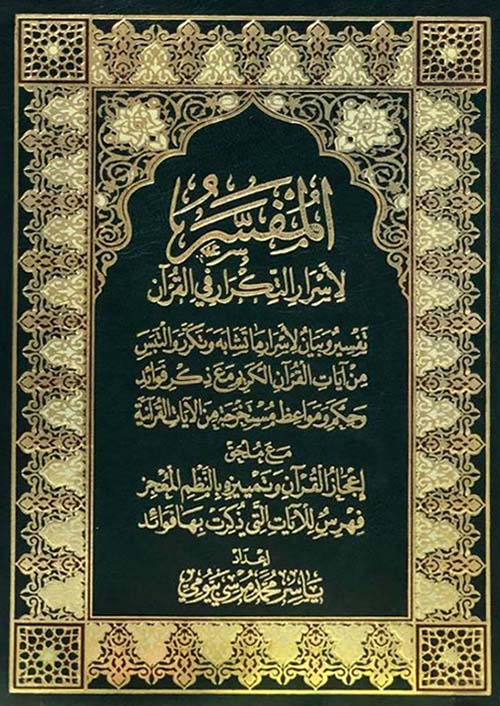 المفسر
لأسرار التكرار في القرآن
تفسير وبيان لأسرار ما تشابه وتكرر والتبس
من آيات القرآن الكريم مع ذكر فوائد
وحكم ومواعظ مستخرجة من الآيات القرآنية
مع ملحق
إعجاز القرآن وتمييزه بالنظم المعجز
فهرس للآيات التي ذكرت بها فوائد
إعداد
ياسر محمد مرسي بيومي